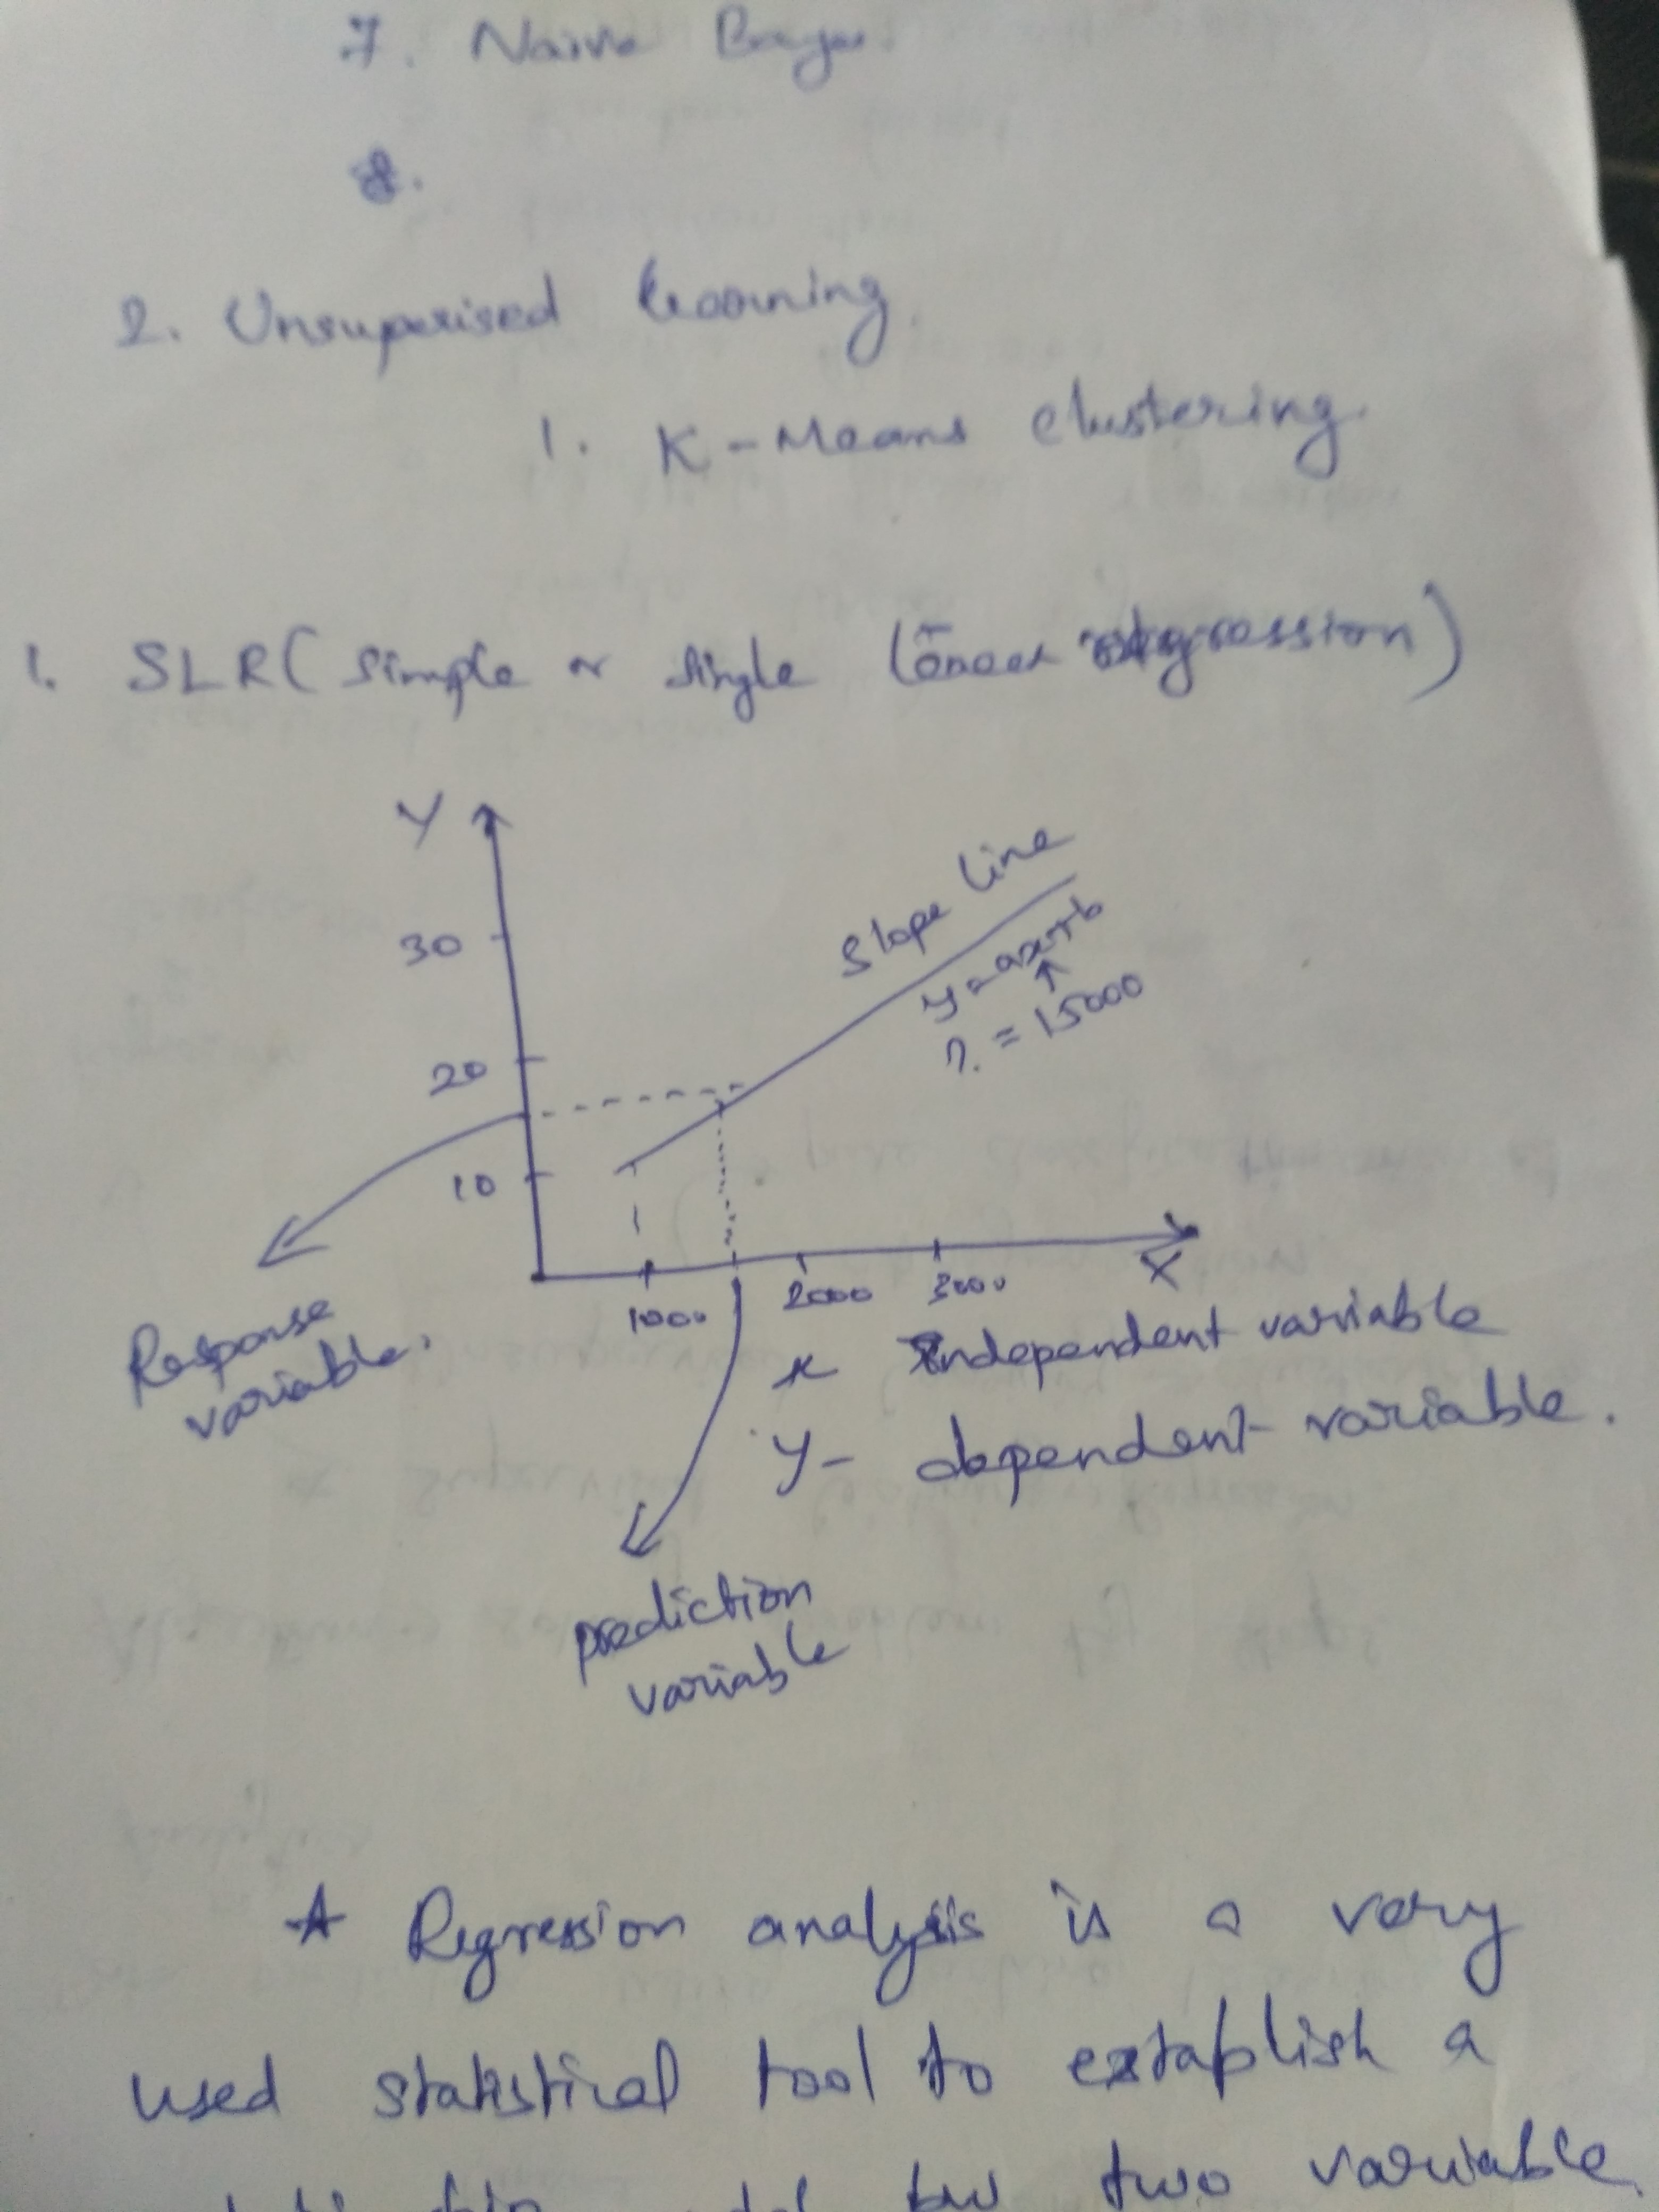 7. Naive Bayes
8.
2. Unsuperised learning
1. K-Means clustering
1. SLR (simple or single linear regression)
Y
30
20
10
Slope line
y=ax+b
↑
?. = 15000
1000 2000 3000
X
Response
variable.
x Independent variable
y - dependent variable.
prediction
variable
* Regression analysis is a very
used statistical tool to establish a
two variable